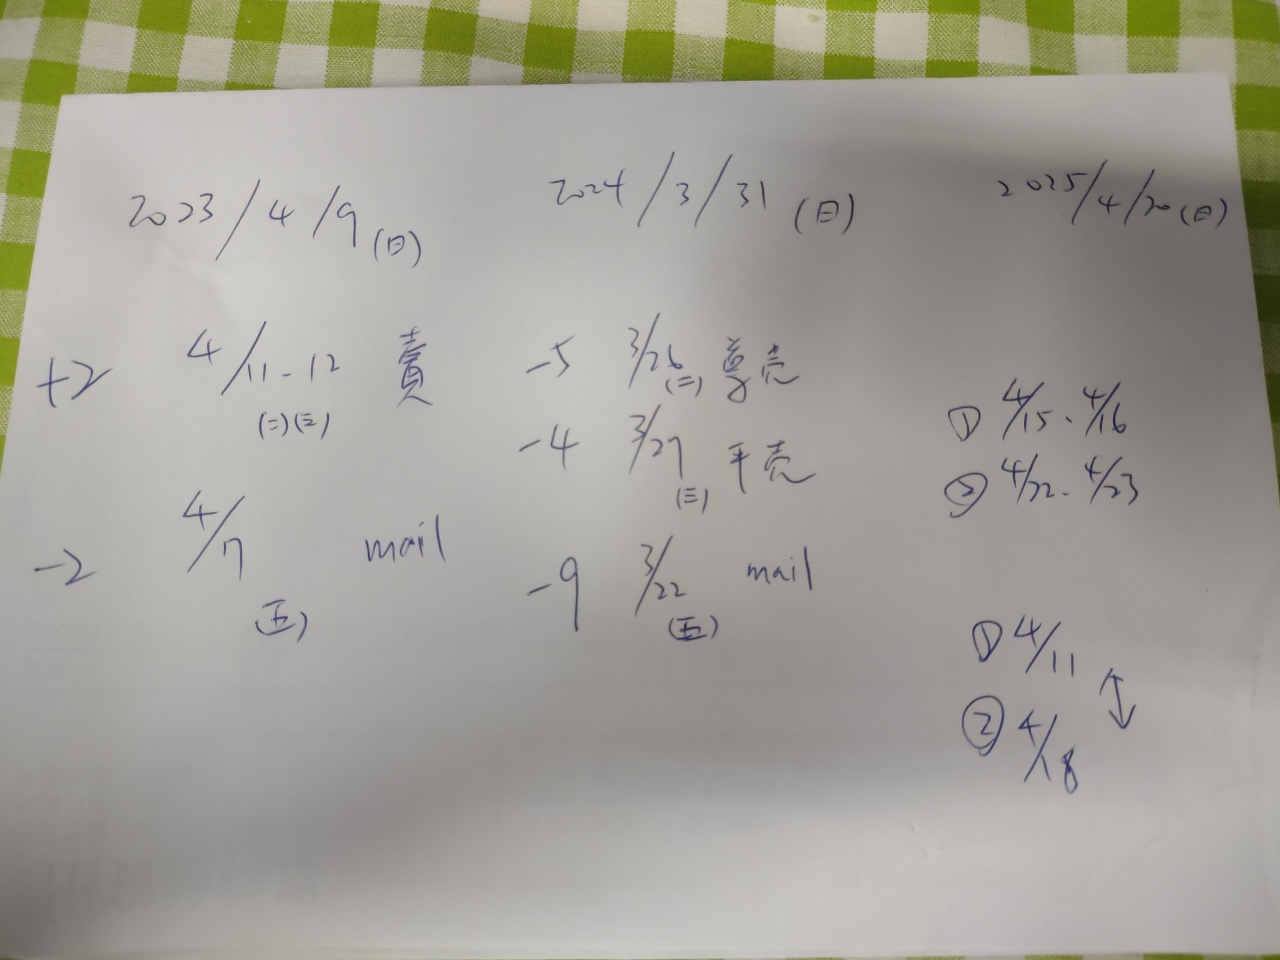 2023/4/9(日)
+2 4/11-12 責
(二)(三)
-2 4/7 mail
(五)
2024/3/31(日)
-5 3/26 尊壳
(二)
-4 3/27 平壳
(三)
-9 3/22 mail
(五)
2025/4/20(日)
① 4/15、4/16
② 4/22-4/23
① 4/11
② 4/18